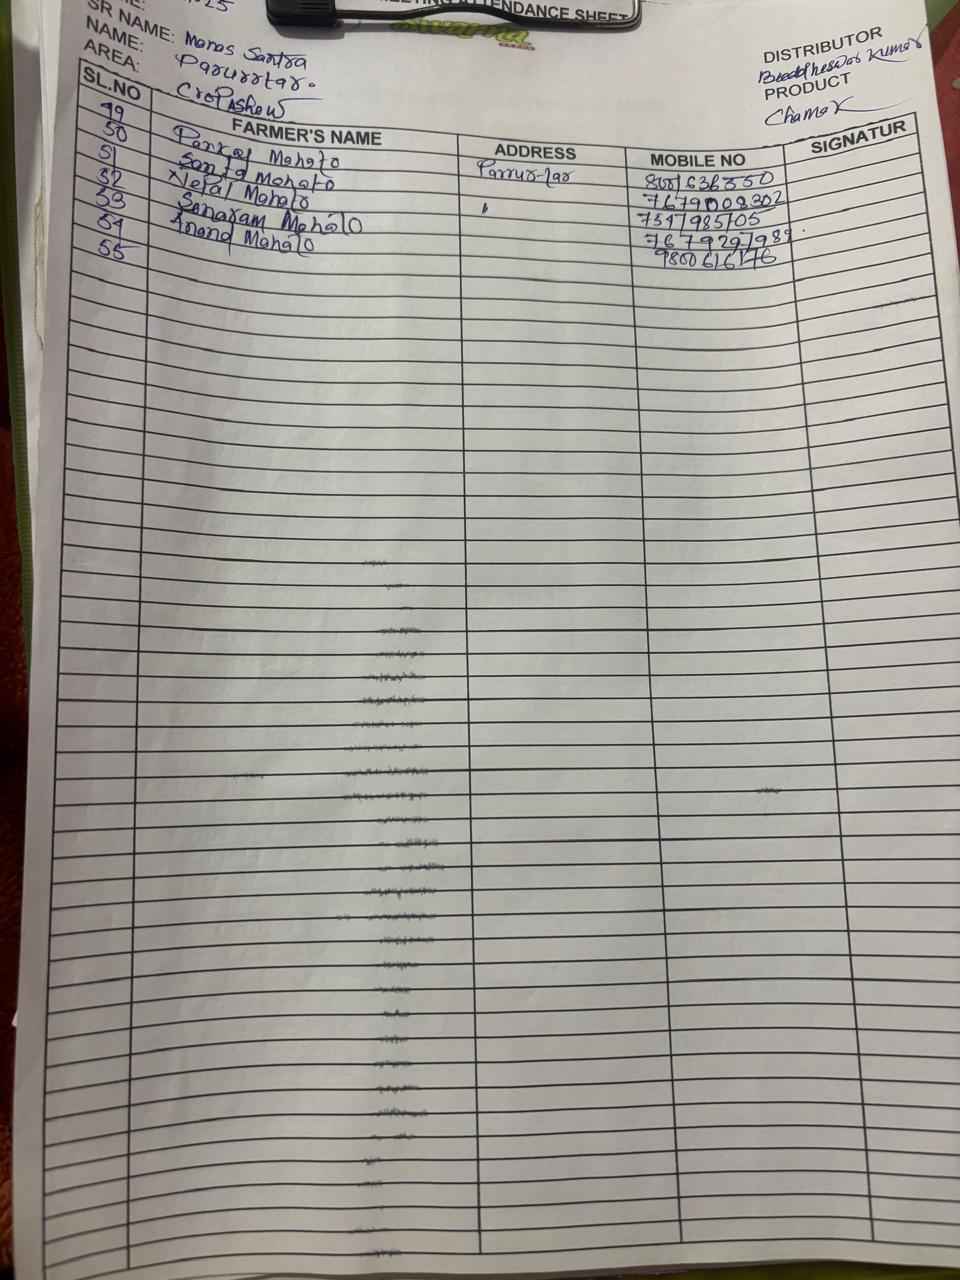 ENDANCE SHEET
SR NAME: Manas Santra
NAME: Parurrtar.
AREA: Crop Show
DISTRIBUTOR
Kumar
PRODUCT
Chamak
SL.NO FARMER'S NAME ADDRESS MOBILE NO SIGNATUR
49 Pankaj Mahato Parrur-tar
50 Mahato 7679008302
51 Nepal Mahato 7547985105
52 Sanaram Mahato
53 Anand Mahato 9800616176
54
55